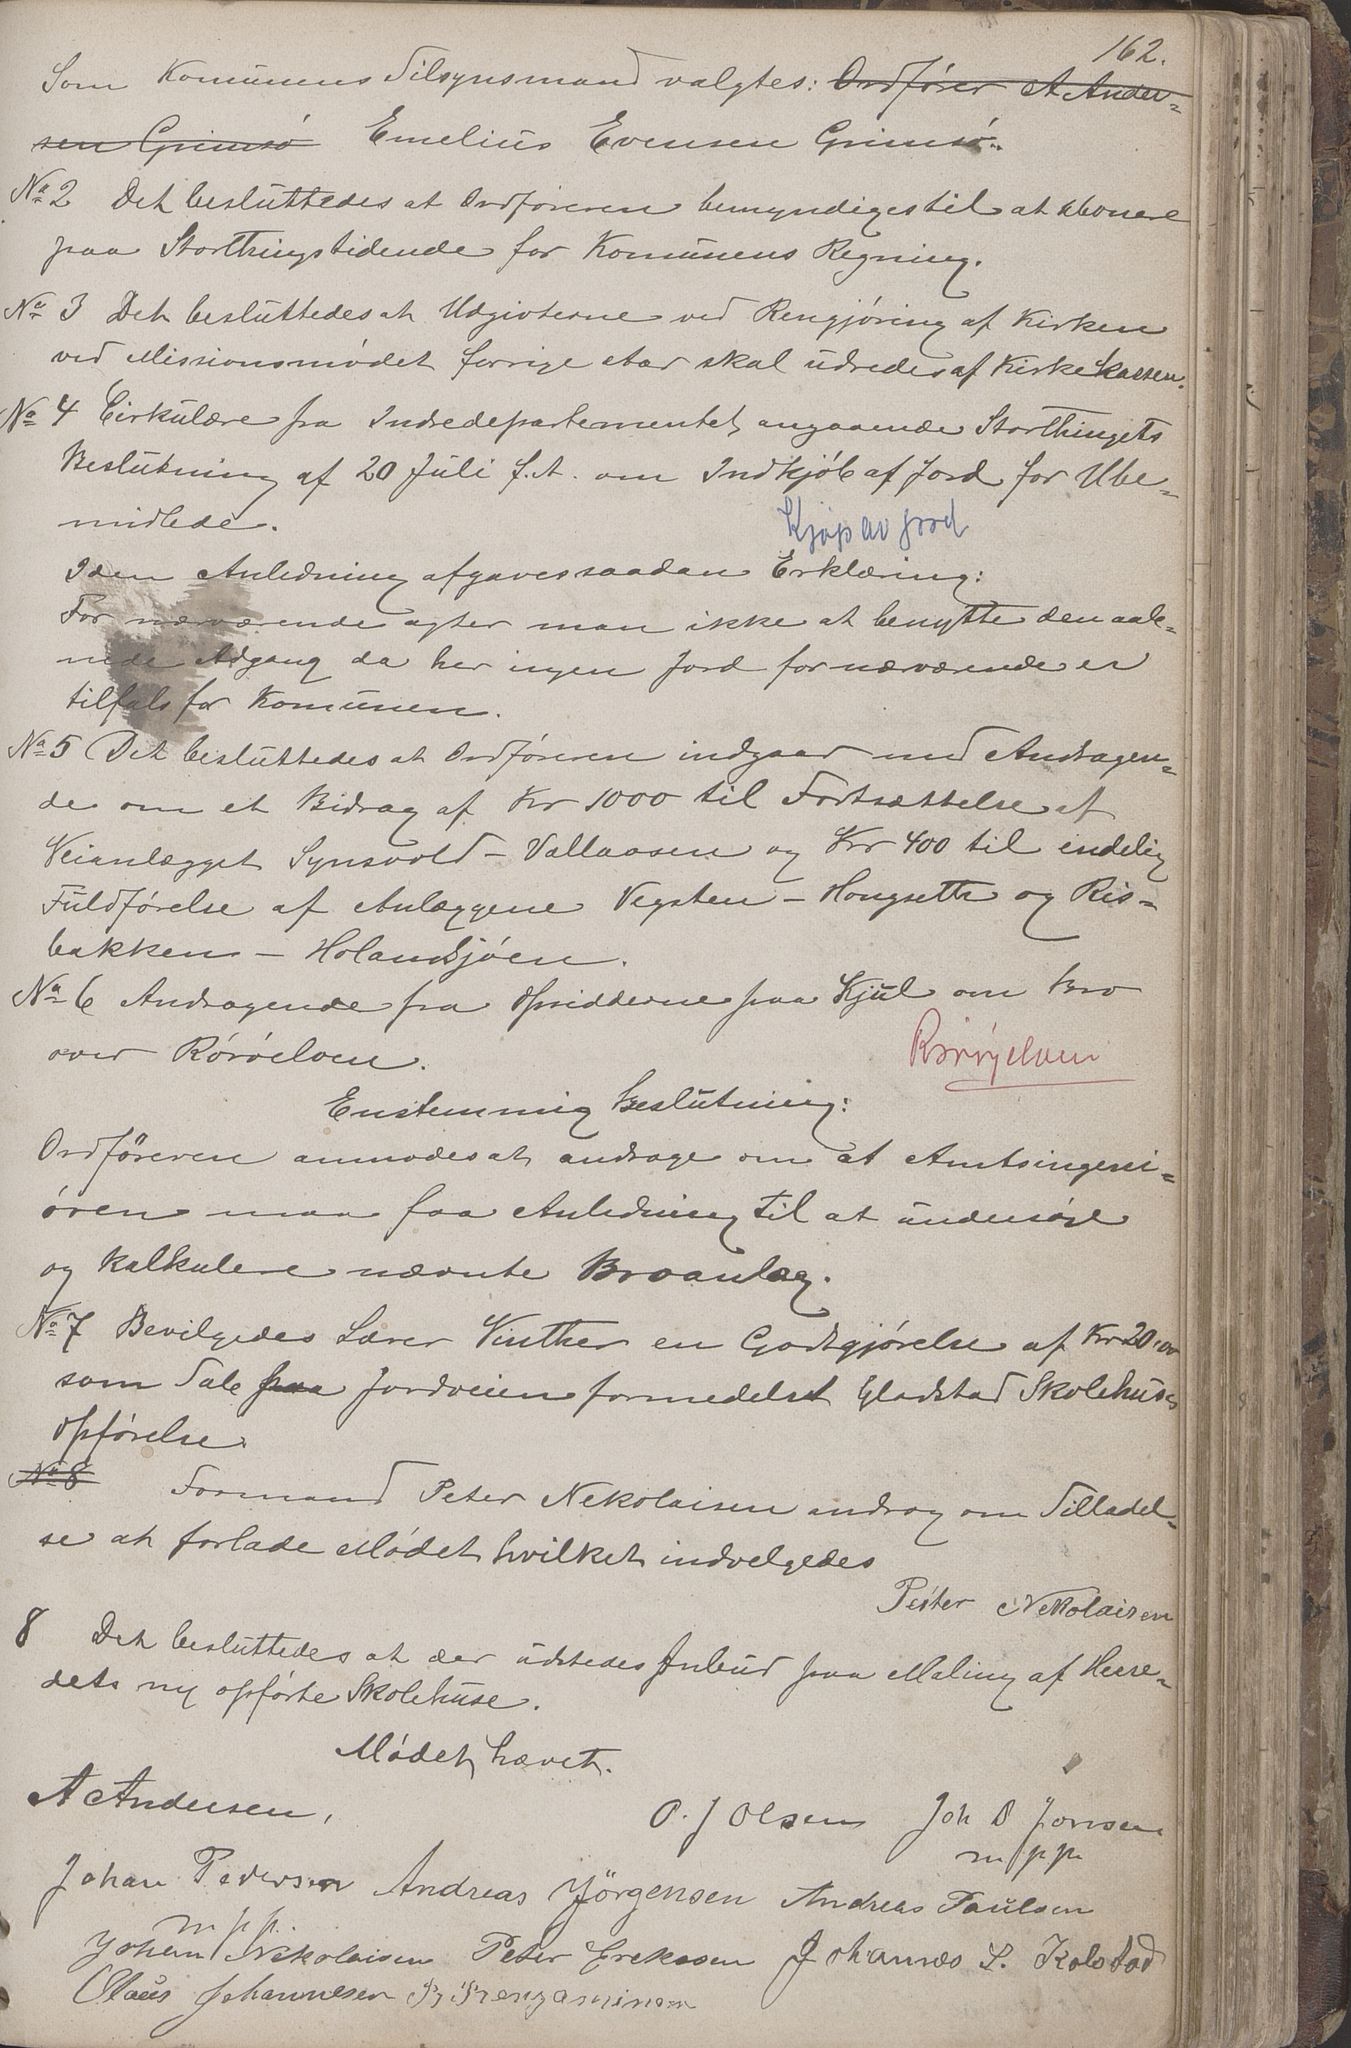 162.
Som Komunens Tilsynsmand valgtes: Ordfører A Ander-
sen Grimsö Emelius Evensen Grimsö.
No 2 Det besluttedes at Ordføreren bemyndiges til at abonere
paa Storthingstidende for Komunens Regning.
No 3 Det besluttedes at Udgivterne ved Rengjøring af Kirken
ved Missionsmødet forrige Aar skal udredes af Kirkekassen.
No 4 Cirkulære fra Indredepartementet angaaende Storthingets
Beslutning af 20 Juli f.A. om Indkjøb af Jord for Ube-
midlede.
Kjøp av jord
I den Anledning afgaves saadan Erklæring:
For nærværende agter man ikke at benytte den aab-
nede Adgang da her ingen Jord for nærværende er
tilfals for Komunen.
No 5 Det besluttedes at Ordføreren indgaar med Andragen-
de om et Bidrag af Kr 1000 til Fortsættelse af
Veianlægget Synsvold - Vallaasen og Kr 400 til endelig
Fuldførelse af Anlæggene Vegsten - Hongsetth og Ris-
bakken - Holandsjøen.
No 6 Andragende fra Opsidderne paa Kjul om Bro
over Röröelven.
Rørøyelven
Enstemmig Beslutning:
Ordføreren anmodes at andrage om at Amtsingeni-
øren maa faa Anledning til at undersøge
og kalkulere nævnte Broanlæg.
No 7 Bevilgedes Lærer Vinther en Godtgjørelse af Kr 20,00
som Tab paa Jordveien formedelst Gladstad Skolehuses
Opførelse.
No 8 Formand Peter Nekolaisen androg om Tilladel-
se at forlade Mødet hvilket indvelgedes
Peter Nekolaisen
8 Det besluttedes at der udstedes Anbud paa Maling af Herre-
dets ny opførte Skolehuse.
Mødet hævet.
A Andersen,
O. J Olsen Joh D Jonsen
m p p
Johan Pedersen Andreas Jörgensen Andreas Paulsen
m p p.
Johan Nekolaisen Peter Ereksen Johannes L. Kolstad
Olaus Johannesen B Benjaminsen